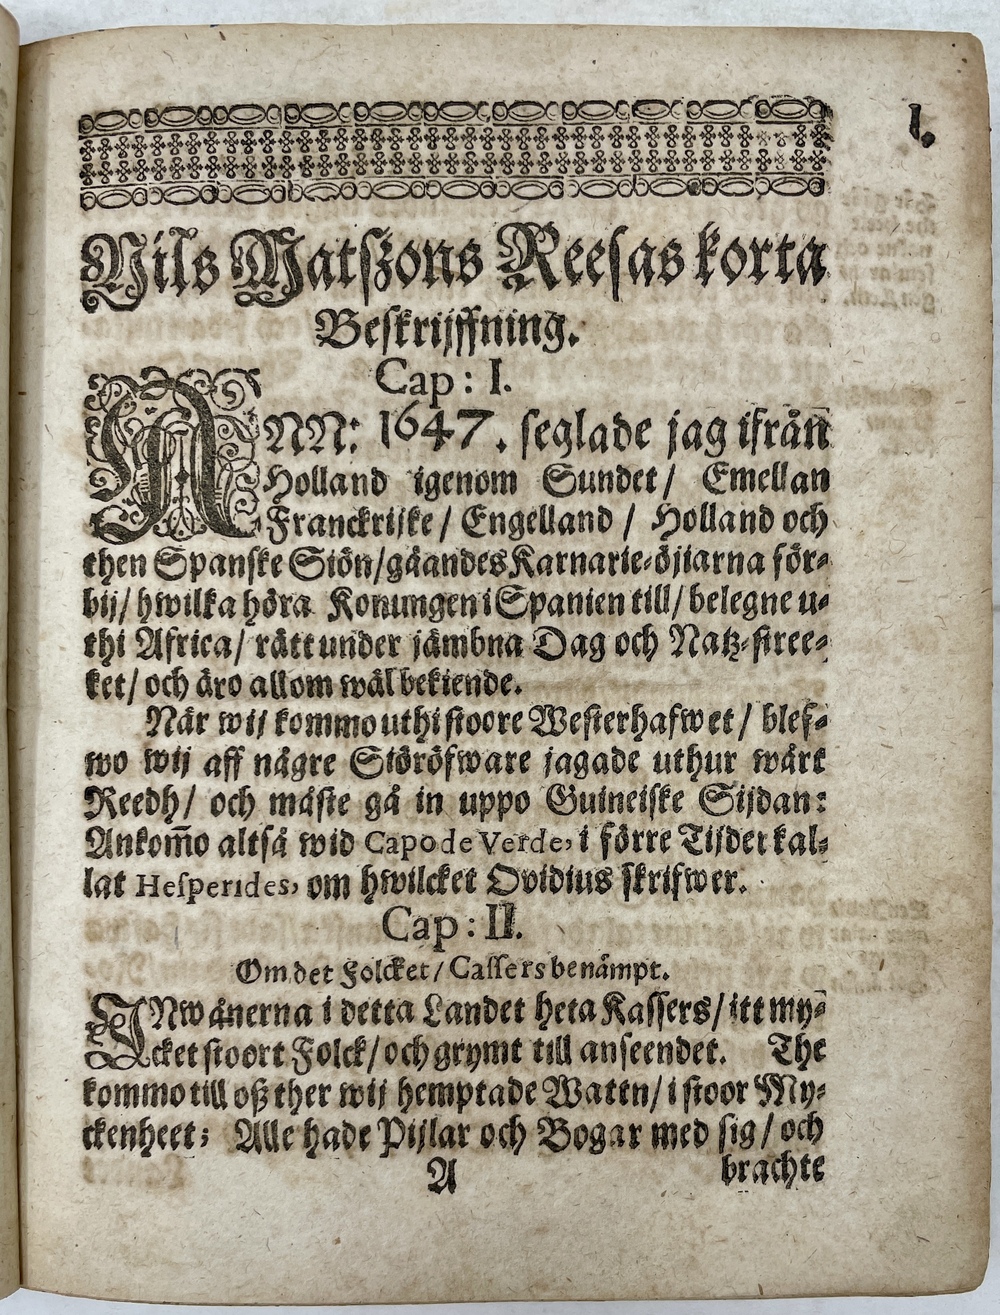 1.
Nils Matszons Reesas korta
Beskrijffning.
Cap: I.
ANN: 1647. seglade jag ifrån
Holland igenom Sundet/ Emellan
Franckrijke/ Engelland/ Holland och
then Spanske Siön/ gåandes Karnarie-öjiarna för-
bij/ hwilka höra Konungen i Spanien till/ belegne u-
thi Africa/ rätt under jämbna Dag och Natz-stree-
ket/ och äro allom wäl bekiende.
När wij kommo uthi stoore Westerhafwet/ blef-
wo wij aff någre Siöröfware jagade uthur wårt
Reedh/ och måste gå in uppo Guineiske Sijdan:
Ankom̃o altså wid Capo de Verde, i förre Tijder kal-
lat Hesperides, om hwilcket Ovidius skrifwer.
Cap: II.
Om det Folcket/ Cassers benämpt.
INwånerna i detta Landet heta Kassers/ itt my-
cket stoort Folck/ och grymt till anseendet. The
kommo till oß ther wij hemptade Watten/ i stoor My-
ckenheet; Alle hade Pijlar och Bogar med sig/ och
A brachte